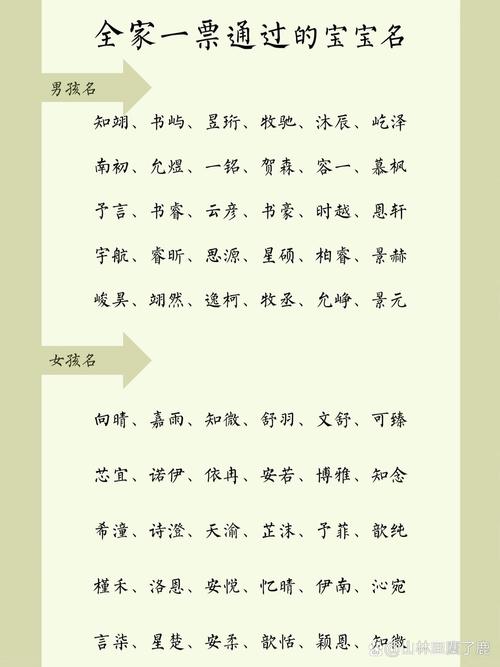 全家一票通过的宝宝名
男孩名
知翊、书屿、昱珩、牧驰、沐辰、屹泽
南初、允煜、一铭、贺森、容一、慕枫
予言、书睿、云彦、书豪、时越、恩轩
宇航、睿昕、思源、星硕、柏睿、景赫
峻昊、翊然、逸柯、牧丞、允峥、景元
女孩名
向晴、嘉雨、知微、舒羽、文舒、可臻
芯宜、诺伊、依冉、安若、博雅、知念
希潼、诗澄、天渝、芷沫、予菲、歆纯
槿禾、洛恩、安悦、忆晴、伊南、沁宛
言柒、星楚、安柔、歆恬、颖恩、知微